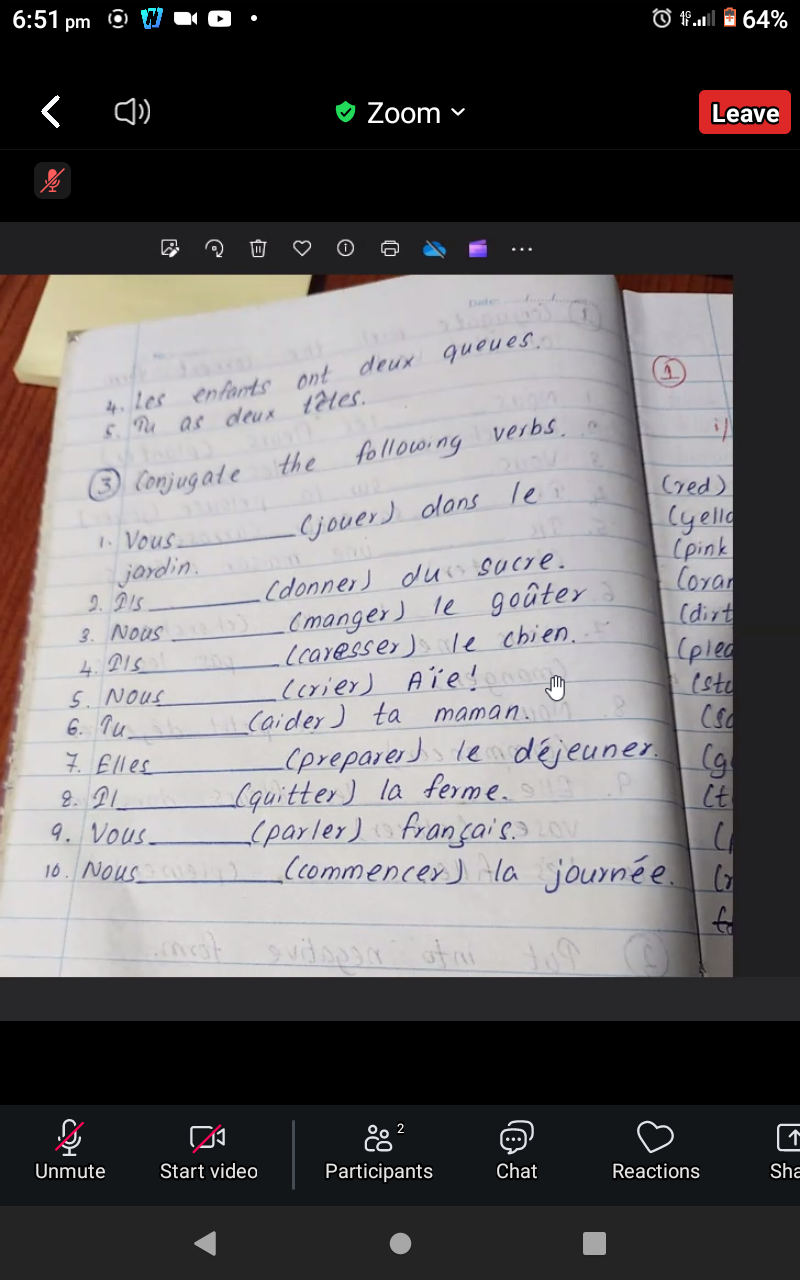 6:51 pm
4G 64%
Zoom
Leave
Date:
4. Les enfants ont deux queues.
5. Tu as deux têtes.
3 Conjugate the following verbs.
1. Vous ________ (jouer) dans le
jardin.
2. Ils ________ (donner) du sucre.
3. Nous ________ (manger) le goûter
4. Ils ________ (caresser) le chien.
5. Nous ________ (crier) Aïe!
6. Tu ________ (aider) ta maman.
7. Elles ________ (preparer) le déjeuner.
8. Il ________ (quitter) la ferme.
9. Vous ________ (parler) français.
10. Nous ________ (commencer) la journée.
1
i)
(red)
(yello
(pink
(oran
(dirt
(plea
(stu
(g
(t
Put into negative form.
Unmute
Start video
Participants
2
Chat
Reactions
Sha